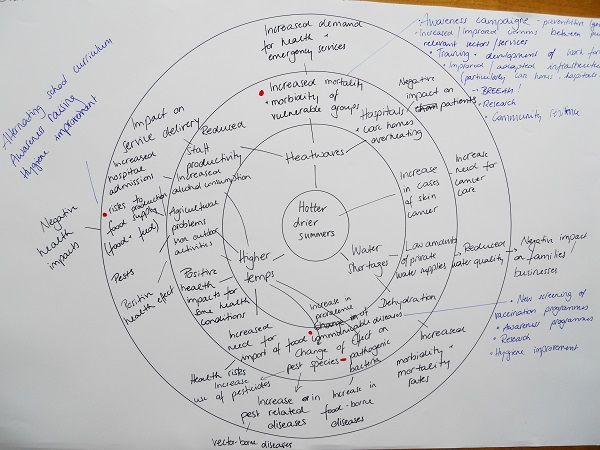 Increased demand
for health +
emergency services
Awareness campaigns - prevention
Increased/improved comms between
relevant sectors/services
Training + development of work
Improved/adapted infrastructure
(particularly care homes + hospitals
BREEAM!
Research
Community
Alternating school curriculum
Awareness raising
Hygiene improvement
Increased mortality
+ morbidity of
vulnerable groups
Negative
impact on
patients
Hospitals
+ care homes
overheating
Impact on
service delivery
Reduced
staff
productivity
Increased
hospital
admissions
Increased
alcohol consumption
Heatwaves
Increase
in cases
of skin
cancer
Increase
need for
cancer
care
risks to
food production
supply
(food + fuel)
Agricultural
problems
non outdoor
activities
Hotter
drier
summers
Negative
health
impacts
Pests
Positive
health effect
Positive
health
impacts for
some health
conditions
Higher
temps
Water
shortages
Low amounts
of private
water supplies
Reduced
water quality
Negative impact
on families
businesses
Increase in
prevalence
of
communicable diseases
Dehydration
New screening or
vaccination programmes
Awareness programmes
Research
Hygiene improvement
Increased
need for
import of food
Change of
pest species
Effect on
pathogenic
bacteria
Increased
morbidity +
mortality
rates
Health risks
Increase
use of pesticides
Increase in
pest related
diseases
Increase in
food-borne
diseases
vecta-borne diseases